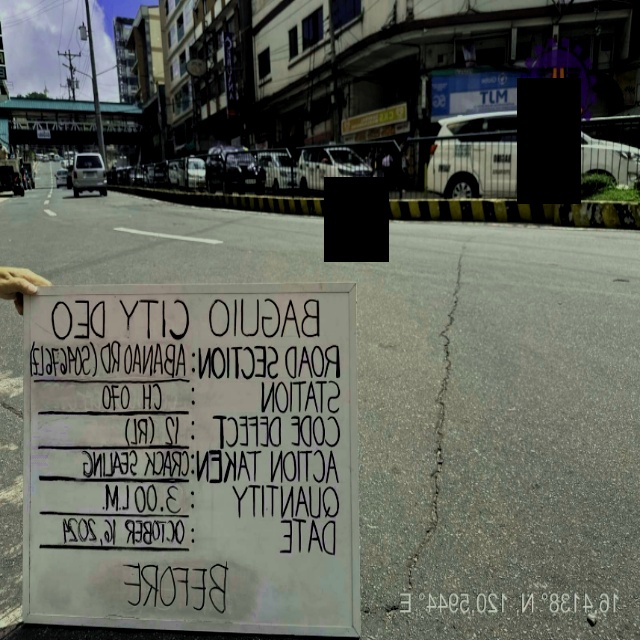 TLM
BAGUIO CITY DEO
ROAD SECTION : ABANAO RD (S04636LZ)
STATION : CH. 070
CODE DEFECT : 12 (RL)
ACTION TAKEN : CRACK SEALING
QUANTITY : 3.00 L.M.
DATE : OCTOBER 16, 2024
BEFORE
16.4138° N, 120.5944° E